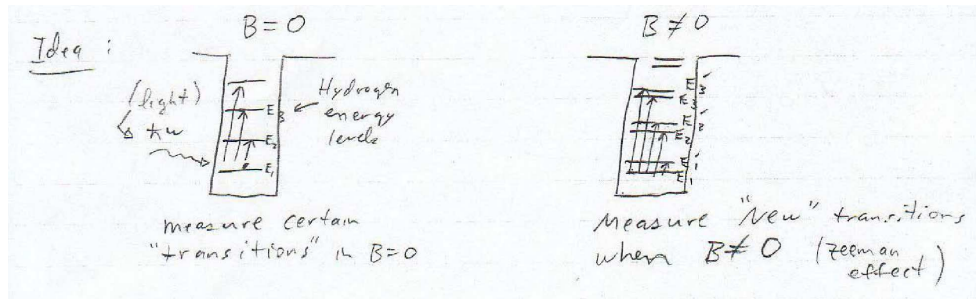 Idea :
B = 0
(light)
ħω
E₃
E₂
E₁
Hydrogen
energy
levels
measure certain
"transitions" in B=0
B ≠ 0
E₃'
E₃
E₂'
E₂
E₁'
E₁
Measure "New" transitions
when B ≠ 0 (Zeeman
effect)